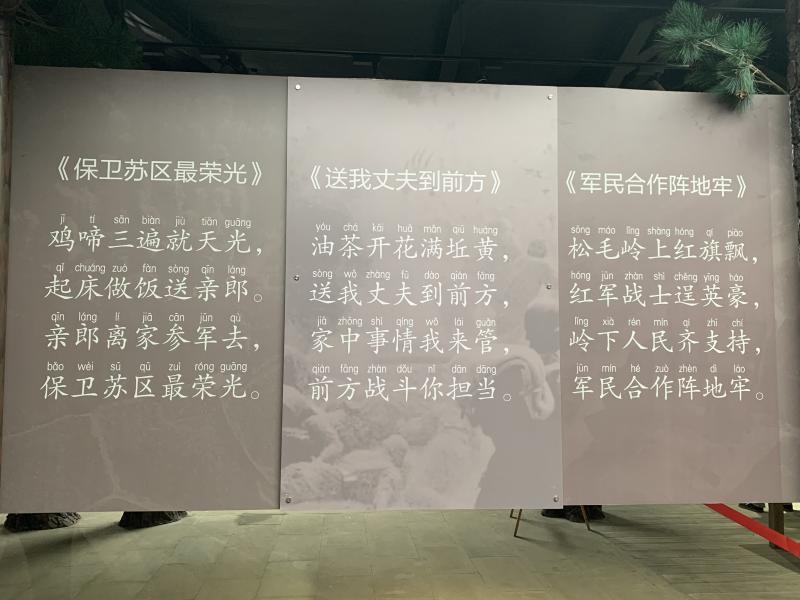 《保卫苏区最荣光》
jī tí sān biàn jiù tiān guāng
鸡啼三遍就天光，
qǐ chuáng zuò fàn sòng qīn láng
起床做饭送亲郎。
qīn láng lí jiā cān jūn qù
亲郎离家参军去，
bǎo wèi sū qū zuì róng guāng
保卫苏区最荣光。
《送我丈夫到前方》
yóu chá kāi huā mǎn qiū huáng
油茶开花满坵黄，
sòng wǒ zhàng fū dào qián fāng
送我丈夫到前方，
jiā zhōng shì qíng wǒ lái guǎn
家中事情我来管，
qián fāng zhàn dǒu nǐ dān dāng
前方战斗你担当。
《军民合作阵地牢》
sōng máo lǐng shàng hóng qí piāo
松毛岭上红旗飘，
hóng jūn zhàn shì chěng yīng háo
红军战士逞英豪，
lǐng xià rén mín qí zhī chí
岭下人民齐支持，
jūn mín hé zuò zhèn dì láo
军民合作阵地牢。